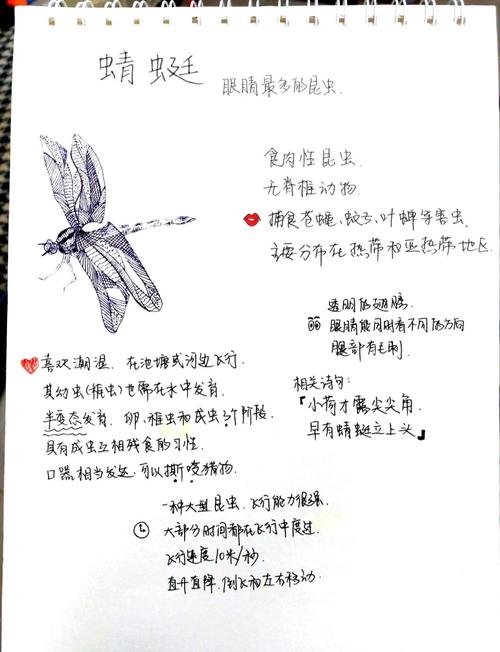 蜻蜓
眼睛最多的昆虫.
食肉性昆虫.
无脊椎动物.
捕食苍蝇、蚊子、叶蝉等害虫.
主要分布在热带和亚热带地区.
透明的翅膀.
眼睛能同时看不同的方向
腿部有毛刺.
喜欢潮湿. 在池塘或河边飞行.
其幼虫(稚虫)也需在水中发育.
半变态发育. 卵、稚虫和成虫3个阶段.
具有成虫互相残食的习性.
口器相当发达. 可以撕咬猎物.
相关诗句:
「小荷才露尖尖角.
早有蜻蜓立上头」
一种大型昆虫. 飞行能力很强.
大部分时间都在飞行中度过.
飞行速度10米/秒.
直升直降. 倒飞和左右移动.